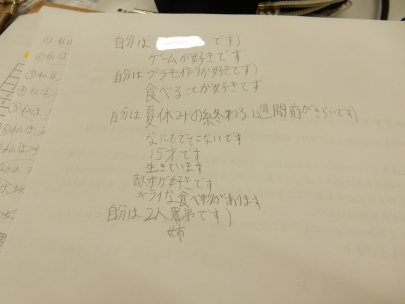 自分は です)
ゲームが好きです
自分はプラモ作りが好きです)
食べることが好きです
自分は夏休みの終わる1週間前がきらいです)
なにもでてこないです
15才です
生きています
散歩が好きです
キライな食べ物があります
自分は2人兄弟です)
姉